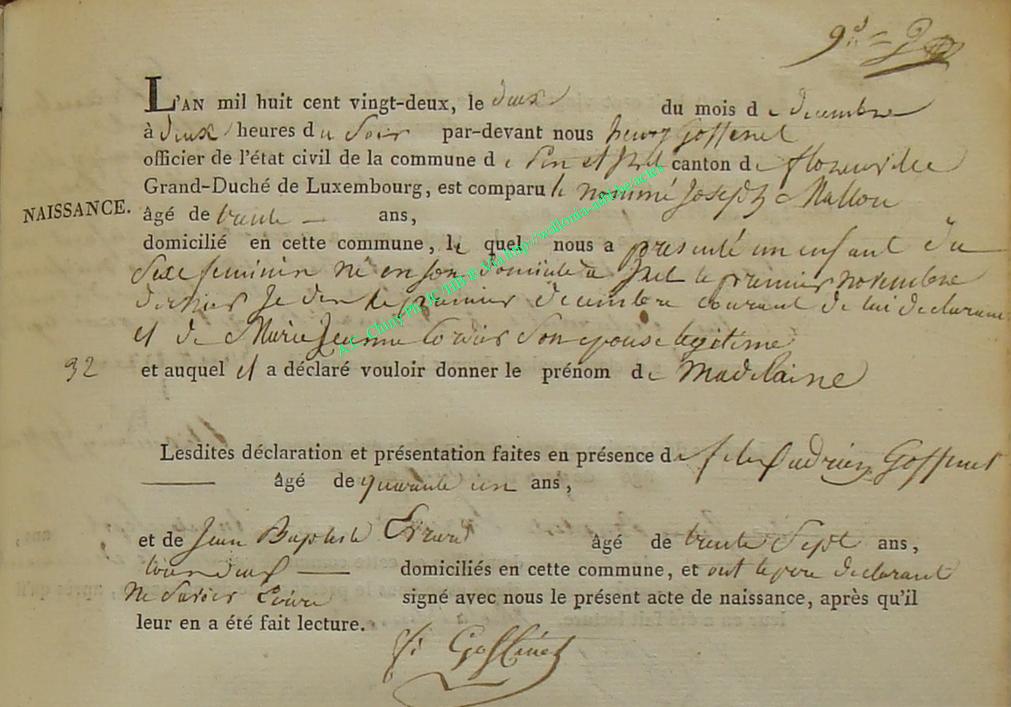 L'AN mil huit cent vingt-deux, le deux du mois de decembre
à deux heures du Soir par-devant nous henry Goffinet
officier de l'état civil de la commune de Pin et Izel canton de florenville
Grand-Duché de Luxembourg, est comparu le nommé Joseph Mallou
NAISSANCE.
âgé de trente ans,
domicilié en cette commune, le quel nous a presenté un enfant du
Sexe feminin né en son domicile a Izel le premier novembre
dernier le premier decembre courant de lui declarant
et de Marie Jeanne son epouse legitime
32
et auquel il a déclaré vouloir donner le prénom de Madelaine
Lesdites déclaration et présentation faites en présence de Goffinet
âgé de quarante un ans,
et de Jean Baptiste Evrard âgé de trente Sept ans,
domiciliés en cette commune, et ont le pere declarant
ne Savoir Ecrire signé avec nous le présent acte de naissance, après qu'il
leur en a été fait lecture.
Goffinet